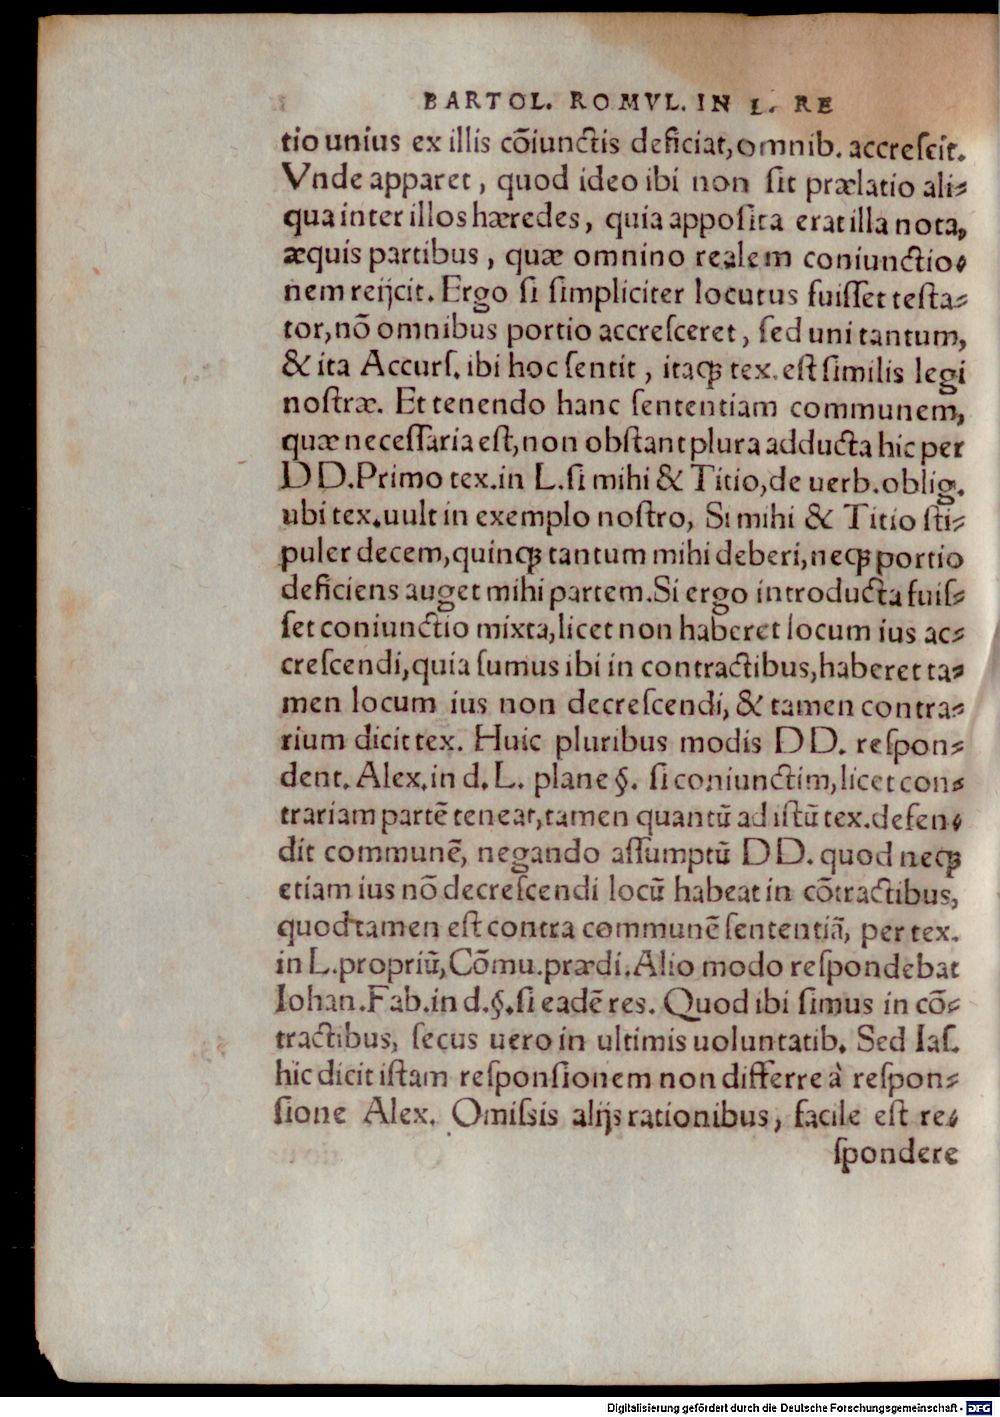 BARTOL. ROMVL. IN L. RE
tio unius ex illis cõiunctis deficiat, omnib. accreſcit.
Vnde apparet, quod ideo ibi non ſit prælatio ali-
qua inter illos hæredes, quia appoſita erat illa nota,
æquis partibus, quæ omnino realem coniunctio-
nem reijcit. Ergo ſi ſimpliciter locutus fuiſſet teſta-
tor, nõ omnibus portio accreſceret, ſed uni tantum,
& ita Accurſ. ibi hoc ſentit, itaqꝫ tex. eſt ſimilis legi
noſtræ. Et tenendo hanc ſententiam communem,
quæ neceſſaria eſt, non obſtant plura adducta hic per
DD. Primo tex. in L. ſi mihi & Titio, de uerb. oblig.
ubi tex. uult in exemplo noſtro, Si mihi & Titio ſti-
puler decem, quinqꝫ tantum mihi deberi, neqꝫ portio
deficiens auget mihi partem. Si ergo introducta fuiſ-
ſet coniunctio mixta, licet non haberet locum ius ac-
creſcendi, quia ſumus ibi in contractibus, haberet ta-
men locum ius non decreſcendi, & tamen contra-
rium dicit tex. Huic pluribus modis DD. reſpon-
dent. Alex. in d. L. plane §. ſi coniunctim, licet con-
trariam partẽ teneat, tamen quantũ ad iſtũ tex. defen-
dit communẽ, negando aſſumptũ DD. quod neqꝫ
etiam ius nõ decreſcendi locũ habeat in cõtractibus,
quod tamen eſt contra communẽ ſententiã, per tex.
in L. propriũ, Cõmu. prædi. Alio modo reſpondebat
Iohan. Fab. in d. §. ſi eadẽ res. Quod ibi ſimus in cõ-
tractibus, ſecus uero in ultimis uoluntatib. Sed Iaſ.
hic dicit iſtam reſponſionem non differre à reſpon-
ſione Alex. Omiſsis alijs rationibus, facile eſt re-
ſpondere
Digitalisierung gefördert durch die Deutsche Forschungsgemeinschaft - DFG